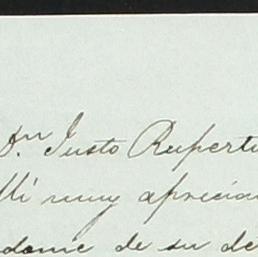 Dn. Justo Ruperto
Mi muy aprecia
dame de su de